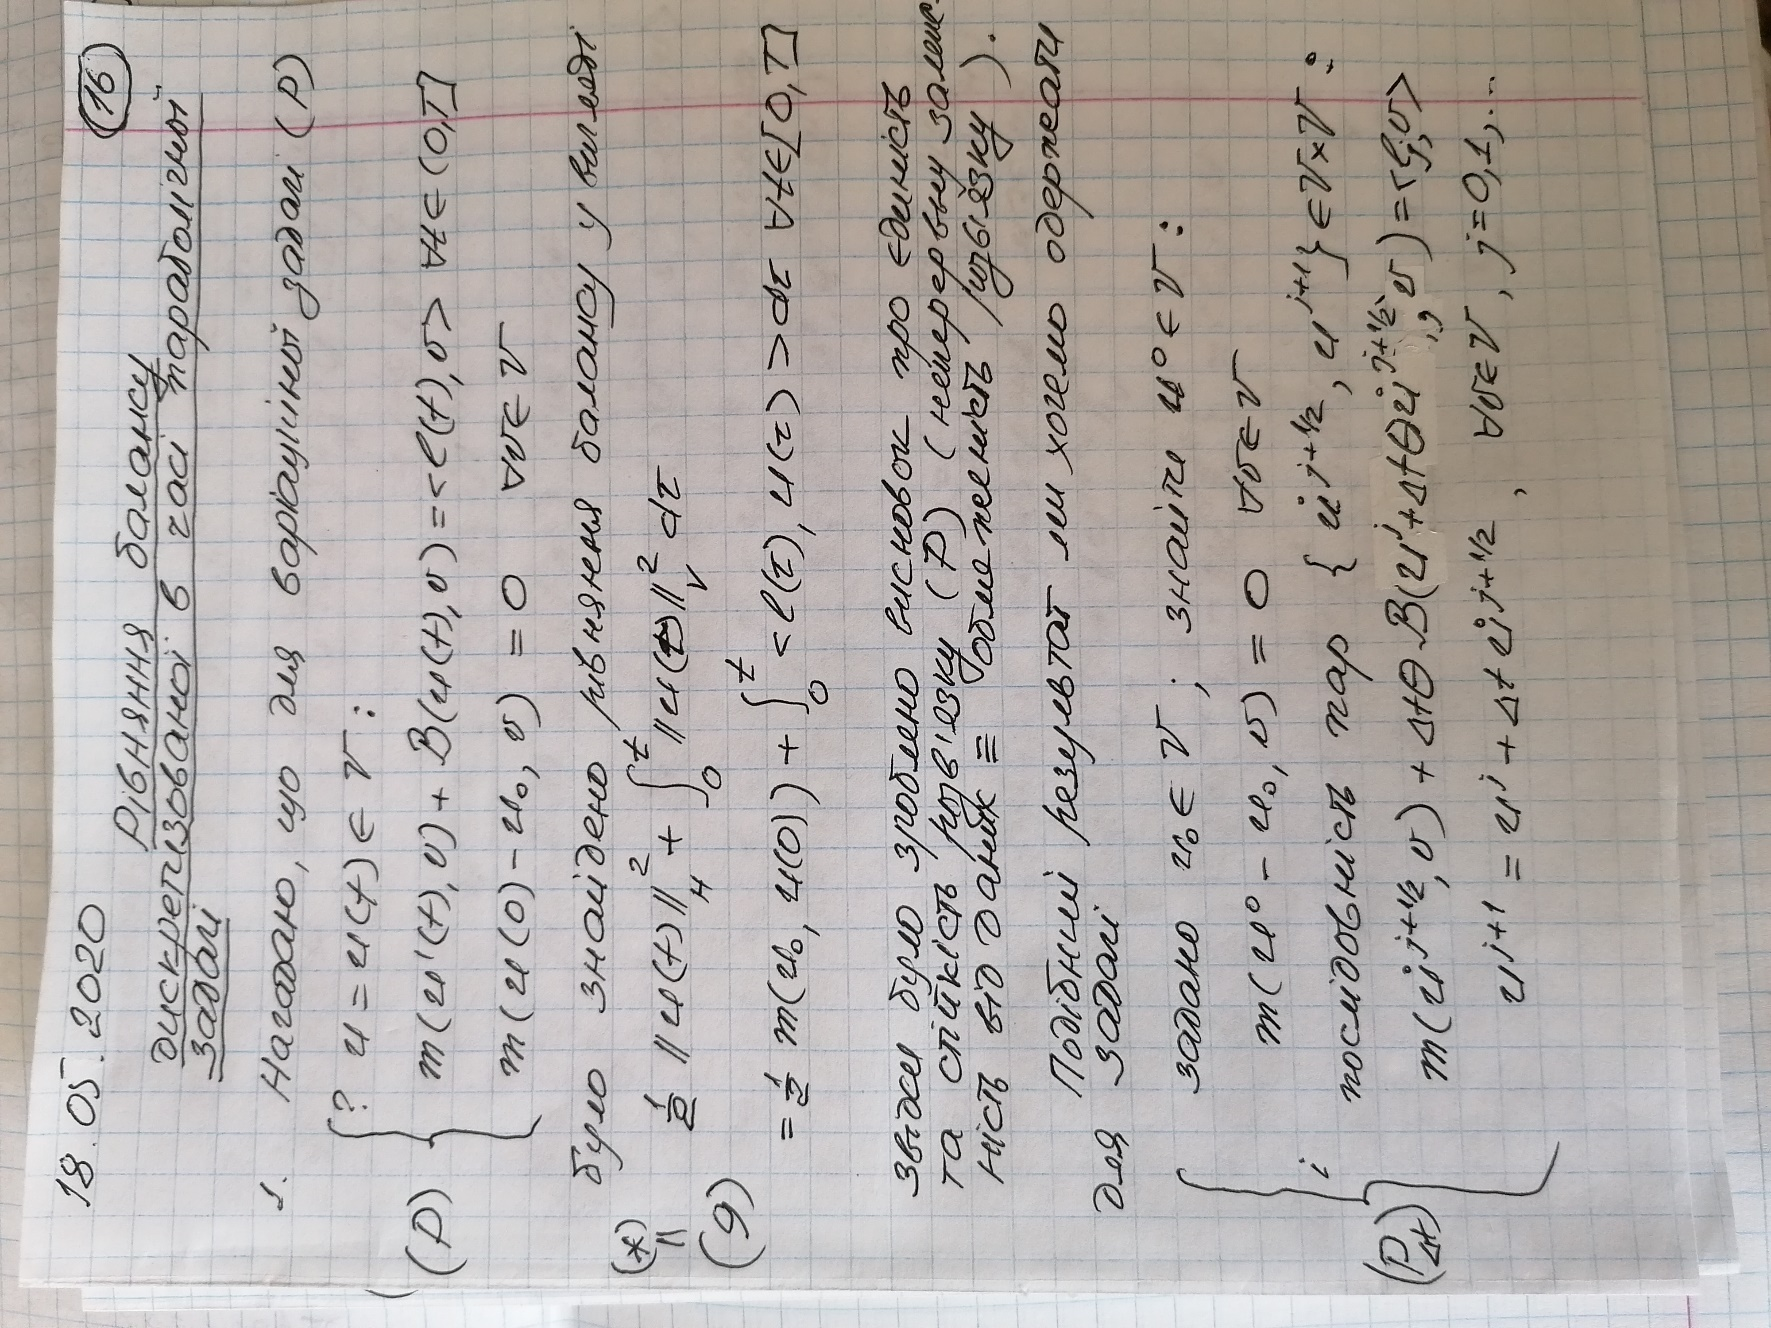 18.05.2020
(16)
Рівняння балансу
дискретизованої в часі параболічної
задачі
1. Нагадаю, що для варіаційної задачі (P)
? u = u(t) ∈ V :
(P)
m(u'(t), v) + B(u(t), v) = <l(t), v> ∀t ∈ (0,T]
m(u(0) - u₀, v) = 0 ∀v ∈ V
було знайдено рівняння балансу у вигляді
(*) = (9)
½ ||u(t)||²_H + ∫₀ᵗ ||u(τ)||²_V dτ
= ½ m(u₀, u(0)) + ∫₀ᵗ <l(τ), u(τ)> dτ ∀t ∈ [0,T]
Звідси було зроблено висновок про єдиність
та стійкість розв'язку (P) (неперервну залеж-
ність від даних = обмеженість розв'язку).
Подібний результат ми хочемо одержати
для задачі
задано u₀ ∈ V ; знайти u⁰ ∈ V :
m(u⁰ - u₀, v) = 0 ∀v ∈ V
і
(P_Δt)
послідовність пар { u̇^{j+1/2}, u^{j+1} } ∈ V×V :
m(u̇^{j+1/2}, v) + ΔtθB(u^j + Δtθu̇^{j+1/2}, v) = <l_j, v>
u^{j+1} = u^j + Δt u̇^{j+1/2} , ∀v ∈ V, j = 0,1,...